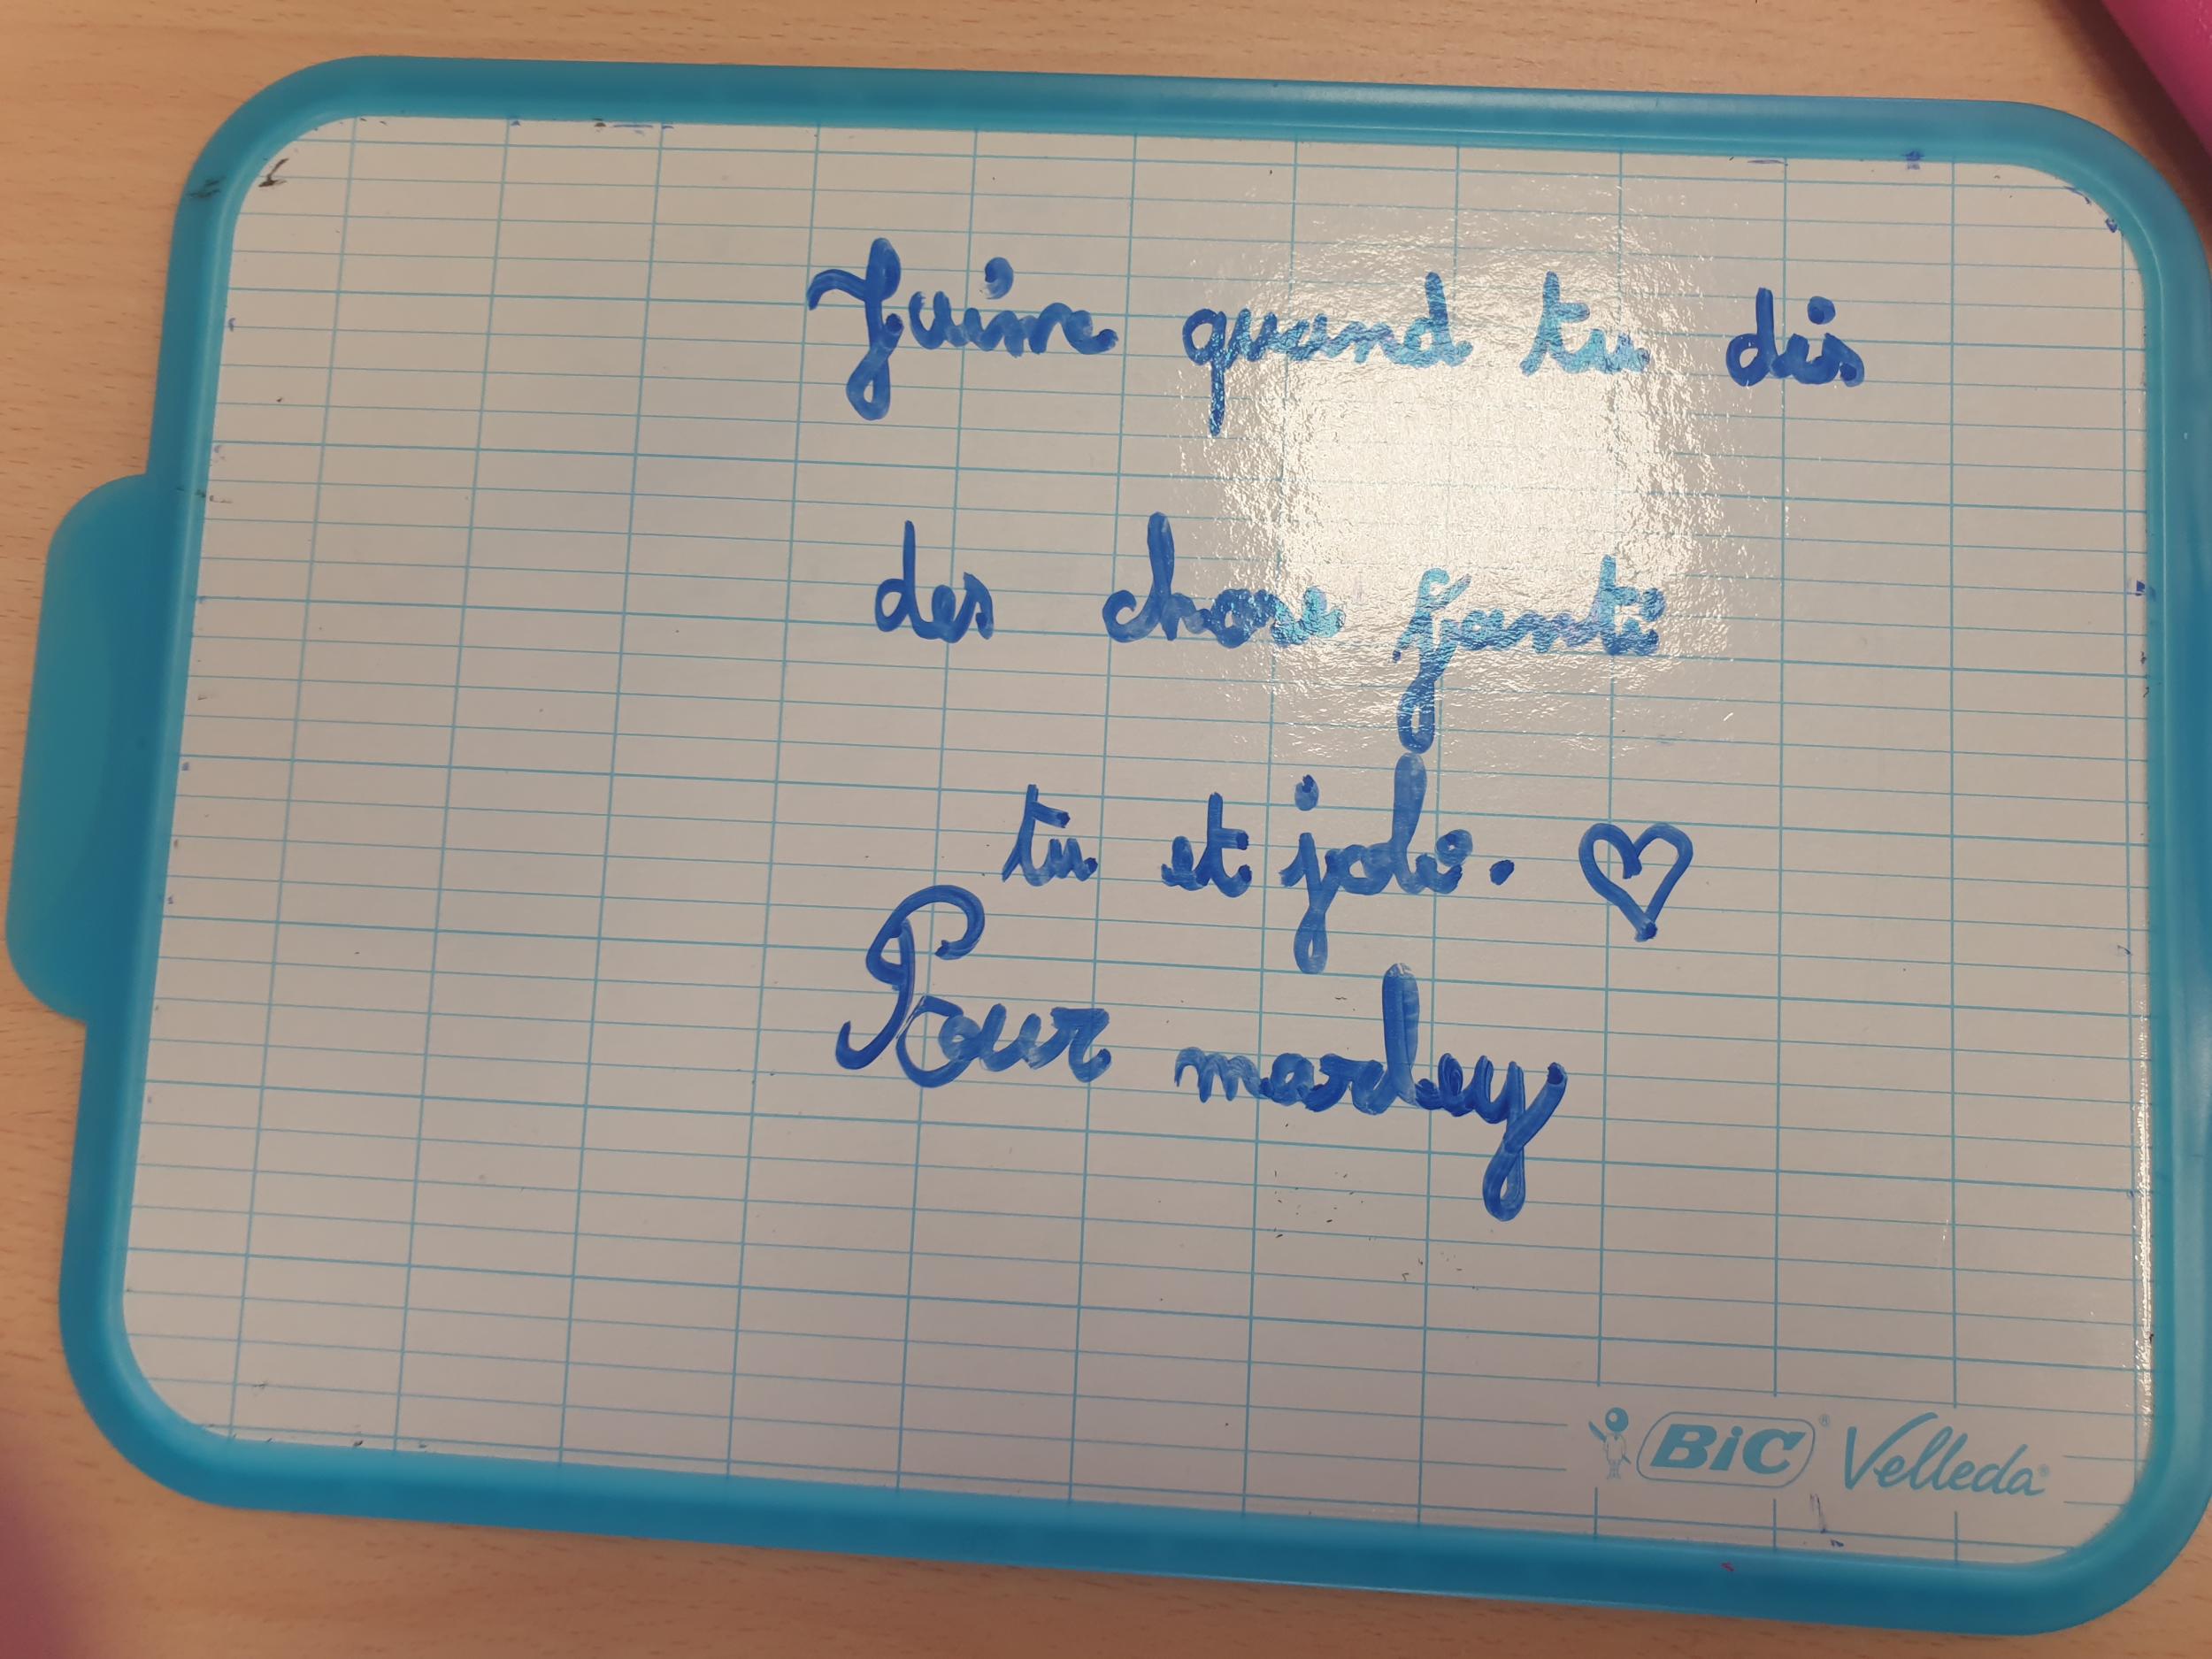 Jaime quand tu dis
des chose janti
tu et joli. ♡
Pour marley
BiC® Velleda®